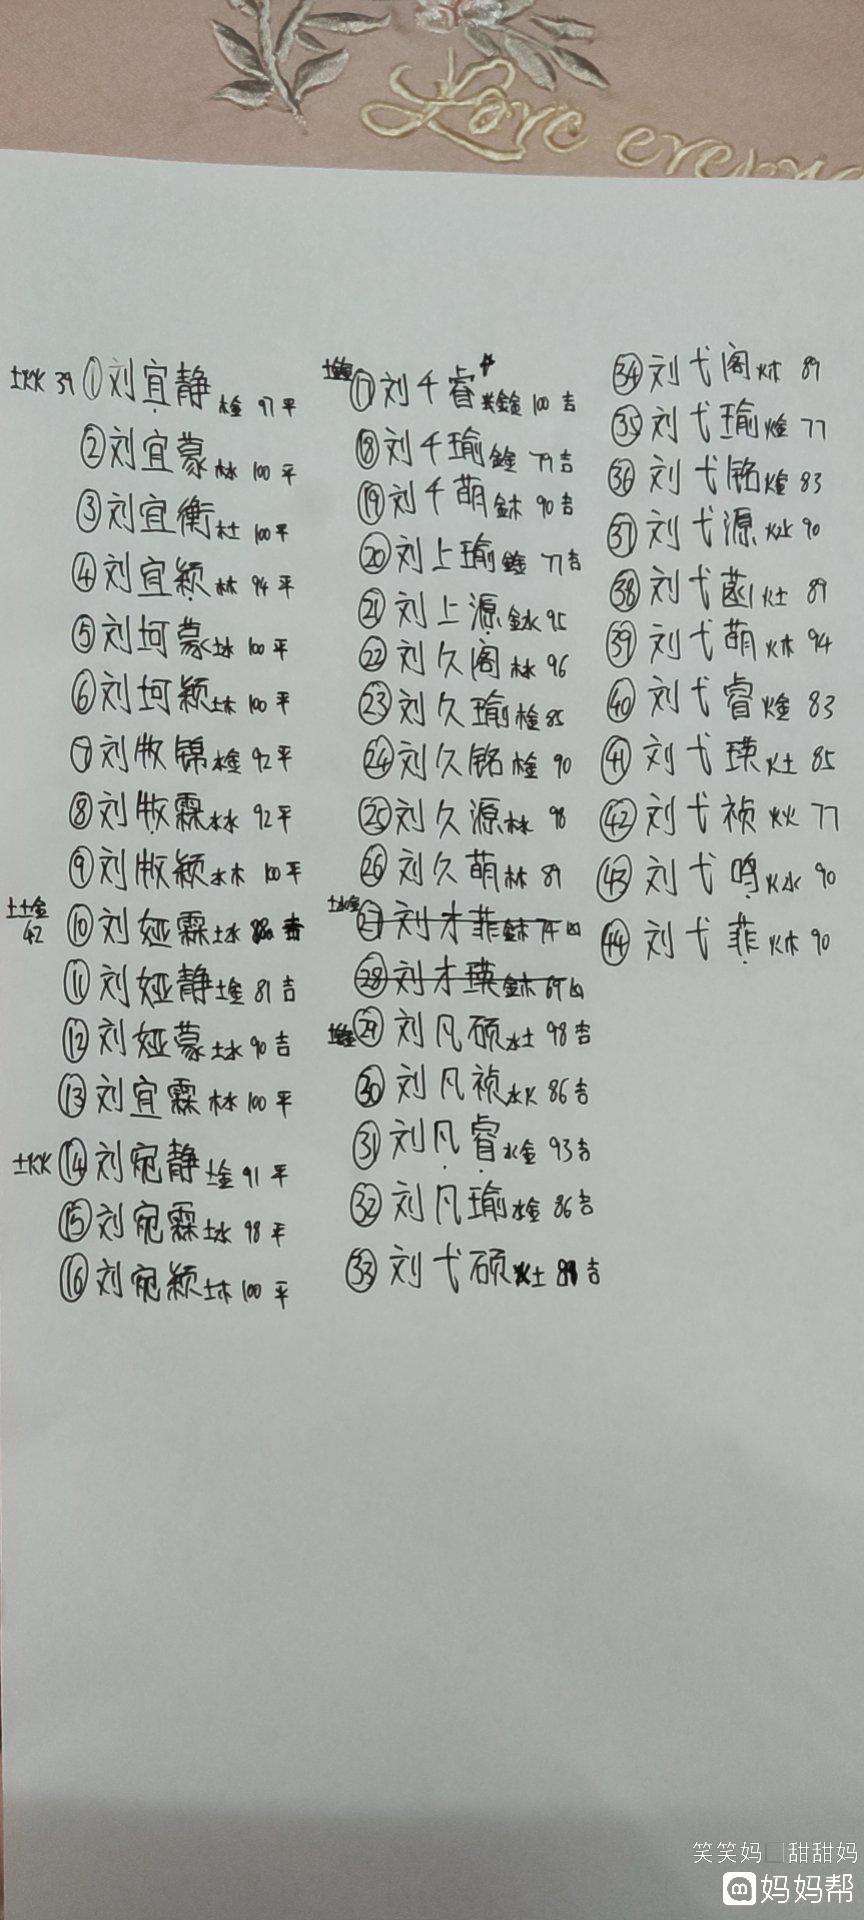 Love
土火火 39 ①刘宜静 木金 97 平
②刘宜蒙 木水 100 平
③刘宜衡 木土 100 平
④刘宜颖 木木 94 平
⑤刘坷蒙 土水 100 平
⑥刘坷颖 土木 100 平
⑦刘牧锦 水金 92 平
⑧刘牧霖 水水 92 平
⑨刘牧颖 水木 100 平
土土金 42 ⑩刘娅霖 土水 吉
⑪刘娅静 土金 81 吉
⑫刘娅蒙 土水 90 吉
⑬刘宜霖 木水 100 平
土火火 ⑭刘宛静 土金 91 平
⑮刘宛霖 土水 98 平
⑯刘宛颖 土木 100 平
⑰刘千睿 金金 100 吉
⑱刘千瑜 金金 79 吉
⑲刘千萌 金木 90 吉
⑳刘上瑜 金金 77 吉
㉑刘上源 金水 95
㉒刘久阁 木水 96
㉓刘久瑜 木金 85
㉔刘久铭 木金 90
㉕刘久源 木水 98
㉖刘久萌 木木 89
土水金 ㉗刘才菲 金木 74 凶
㉘刘才瑛 金木 69 凶
㉙刘凡硕 水土 98 吉
㉚刘凡祯 水火 86 吉
㉛刘凡睿 水金 93 吉
㉜刘凡瑜 水金 86 吉
㉝刘弋硕 火土 吉
㉞刘弋阁 火木 89
㉟刘弋瑜 火金 77
㊱刘弋铭 火金 83
㊲刘弋源 火水 90
㊳刘弋 火土 89
㊴刘弋萌 火木 94
㊵刘弋睿 火金 83
㊶刘弋瑛 火土 85
㊷刘弋祯 火火 77
㊸刘弋鸣 火水 90
㊹刘弋菲 火木 90
笑笑妈 甜甜妈
妈妈帮